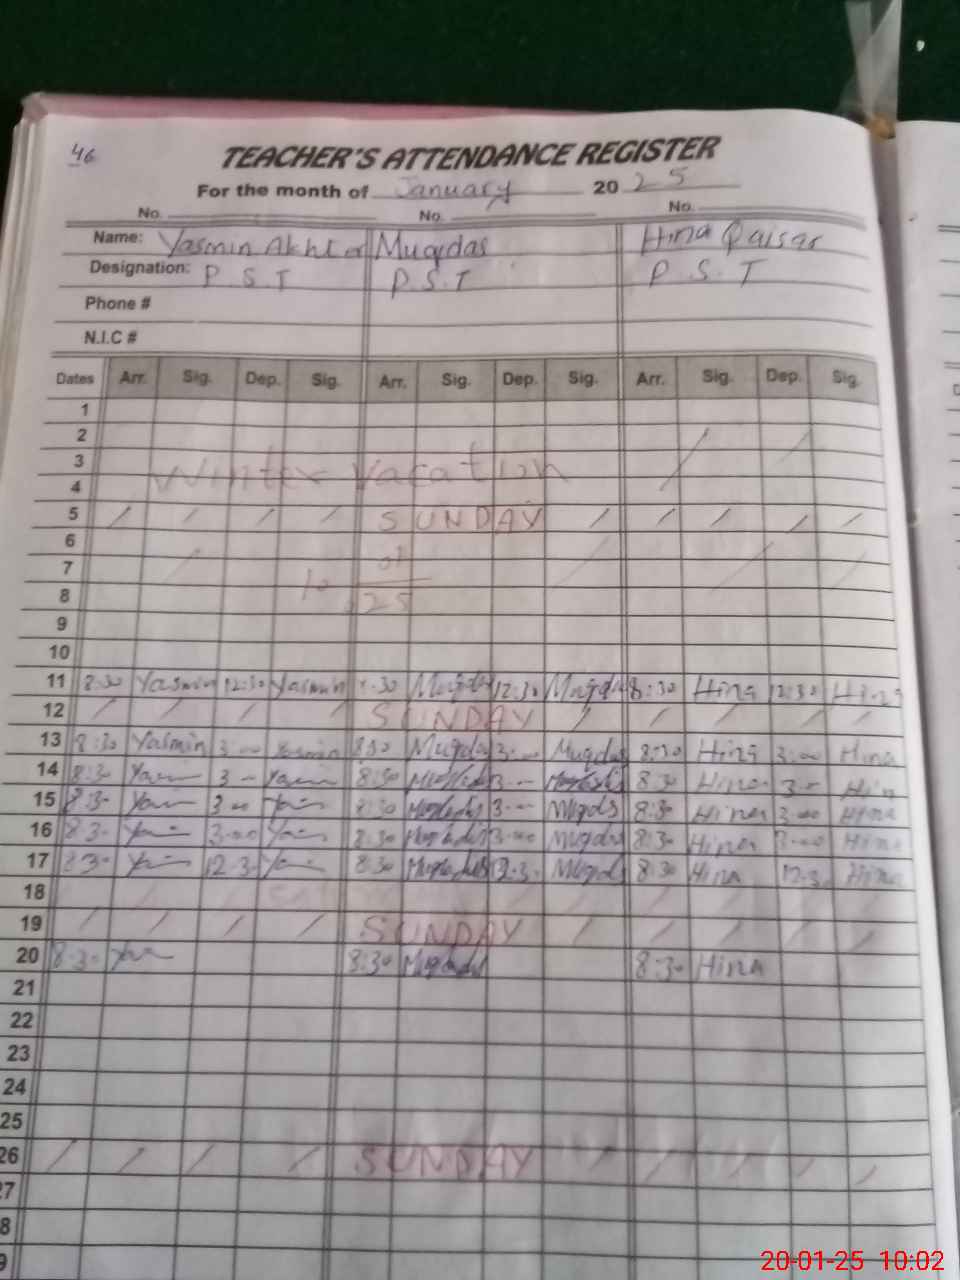 46
TEACHER'S ATTENDANCE REGISTER
For the month of January 20 25
No. No. No.
Name: Yasmin Akhtar Muqdas Hina Qaisar
Designation: P.S.T P.S.T P.S.T
Phone #
N.I.C #
Dates Arr. Sig. Dep. Sig. Arr. Sig. Dep. Sig. Arr. Sig. Dep. Sig.
1
2
3
Winter Vacation
4
5 SUNDAY
6
7 01
8 10 25
9
10
11 8:30 Yasmin 12:30 Yasmin 8:30 Muqdas 12:30 Muqdas 8:30 Hina 12:30 Hina
12 SUNDAY
13 8:30 Yasmin 3:00 Yasmin 8:30 Muqdas 3:00 Muqdas 8:30 Hina 3:00 Hina
14 8:30 3:00 8:30 Muqdas 3:00 8:30 Hina 3:00 Hina
15 8:30 3:00 8:30 Muqdas 3:00 Muqdas 8:30 Hina 3:00 Hina
16 8:30 3:00 8:30 Muqdas 3:00 Muqdas 8:30 Hina 3:00 Hina
17 8:30 12:30 8:30 Muqdas 12:30 Muqdas 8:30 Hina 12:30 Hina
18
19 SUNDAY
20 8:30 8:30 Muqdas 8:30 Hina
21
22
23
24
25
26 SUNDAY
7
8
9
20-01-25 10:02